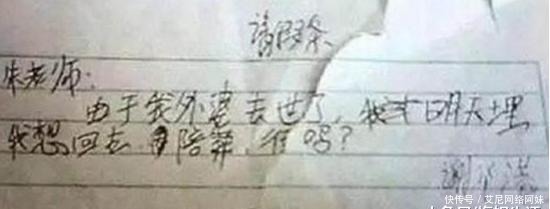 请假条
朱老师:
由于我外婆去世了,我才明天埋
我想回去陪葬,行吗?
谢
快传号 / 艾尼网络网妹